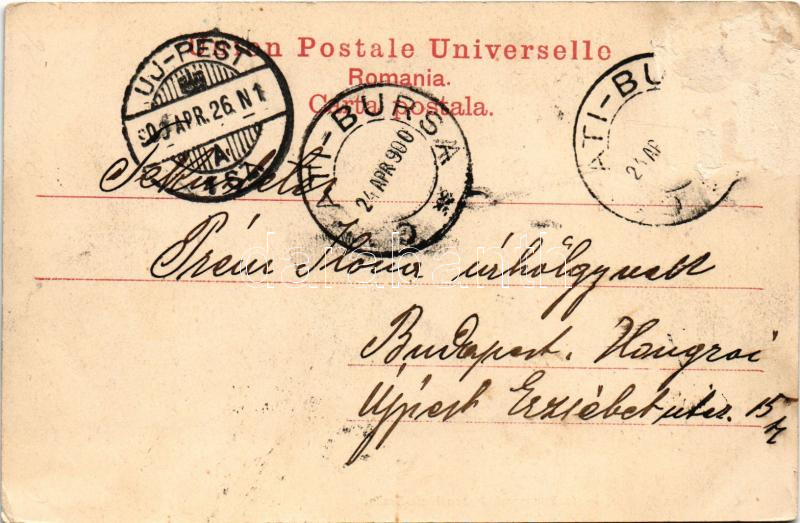 Union Postale Universelle
Romania.
Carta postala.
UJ-PEST
900 APR. 26. N1
A
GALATI-BURSA
24 APR 900
GALATI-BURSA
24 AP
Tekintetes
Prém Ilona úrhölgynek
Budapest. Hongroi
Újpest Erzsébet utcz. 15
darabanth